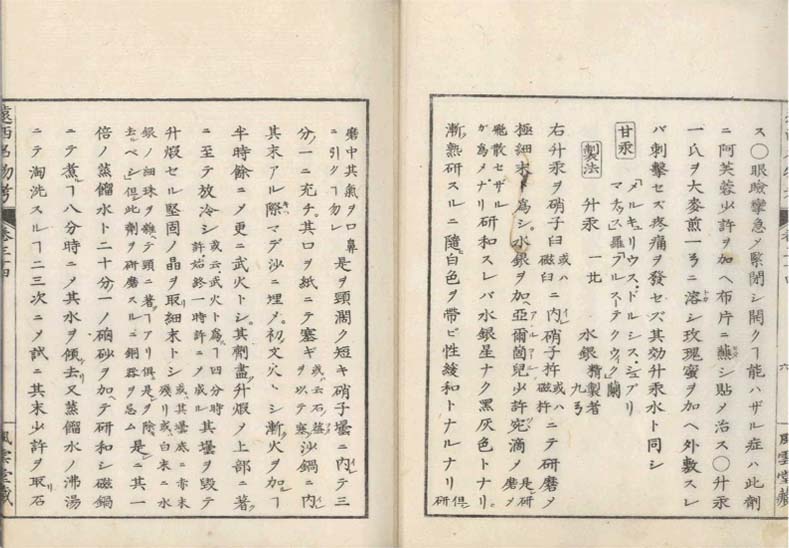 ス〇眼瞼攣急乄緊閉シ開クヿ能ハザル症ハ此劑
ニ阿芙蓉少許ヲ加ヘ布片ニ蘸シ貼メ治ス〇升汞
一氏ヲ大麥煎一ニ溶シ玫瑰蜜ヲ加ヘ外敷スレ
バ刺擊セズ疼痛ヲ發セズ其効升汞水ト同シ
甘汞
「メルキュリウス、ドルシス、シュブリ
マチュス」羅「アルーステクウィク」蘭
製法 升汞 一比 水銀 精製者 九
右升汞ヲ硝子臼 或ハ磁臼 ニ内レ硝子杵 或ハ磁杵 ニテ研磨乄
極細末ト爲シ水銀ヲ加ヘ亞爾箇兒少許ヲ滴メ研磨乄 是レ
飛散セザルガ爲メナリ 研和スレバ水銀星ナク黑灰色トナリ
漸ク熟研スルニ隨ヒ白色ヲ帶ビ性緩和トナルナリ 但研
磨中其氣ヲ口鼻ニ引クヿ勿レ 是ヲ頸濶ク短キ硝子壜ニ内レテ三
分一ニ充チ其口ヲ紙ニテ塞ギ 或云石ヲ以テ塞グ 沙鍋ニ内レ
其末アル際マデ沙ニ埋メ初メ文火トシ漸ク火ヲ加ヘ
半時餘ニ乄更ニ武火トシ其劑盡ク升煆乄上部ニ著ク
ニ至テ放冷シ 或云武火ト爲ヿ四分時許始終一時許ニ乄成ル 其壜ヲ毀テ
升煆セル堅固ノ晶ヲ取リ細末トシ 或其壜底ニ赤末殘リ或白末ニ水
銀ノ細珠ヲ雜テ頸ニ著ヿアリ俱ニ是ヲ除去ベシ但此劑ヲ研磨スルニ銅器ヲ忌ム 是ニ其一
倍ノ蒸餾水ト二十分一ノ硇砂ヲ加テ研和シ磁鍋
ニテ煮ヿ八分時ニ乄其水ヲ傾去又蒸餾水ノ沸湯
ニテ淘洗スルヿ二三次ニ乄試ニ其末少許ヲ取石
遠西名物考
卷三十四
風雲堂藏
六
風雲堂藏